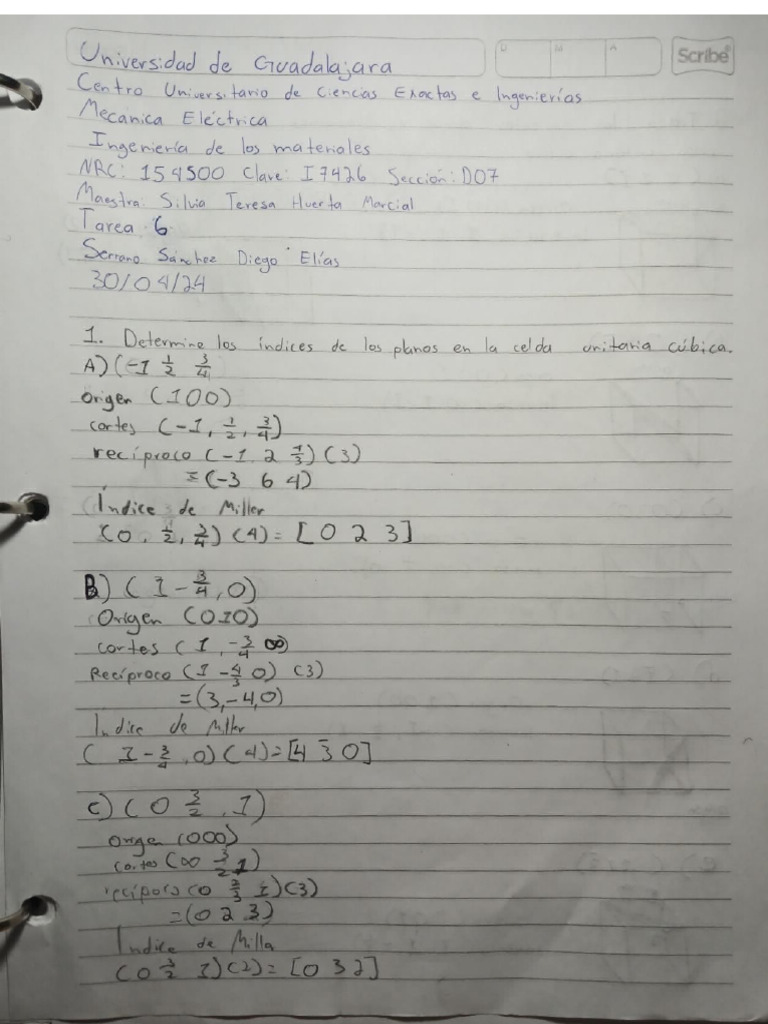 Scribe
D M A
Universidad de Guadalajara
Centro Universitario de Ciencias Exactas e Ingenierías
Mecanica Eléctrica
Ingeniería de los materiales
NRC: 154500 Clave: I7426 Sección: D07
Maestra: Silvia Teresa Huerta Marcial
Tarea 6
Serrano Sánchez Diego Elías
30/04/24
1. Determine los índices de los planos en la celda unitaria cúbica.
A) (-1 1/2 3/4
origen (100)
cortes (-1, 1/2, 3/4)
recíproco (-1 2 4/3) (3)
= (-3 6 4)
Índice de Miller
(0, 1/2, 3/4) (4) = [0 2 3]
B) (1 -3/4, 0)
Origen (010)
cortes (1, -3/4 ∞)
Recíproco (1 -4/3 0) (3)
= (3, -4, 0)
Indice de Miller
(1 -3/4, 0) (4) = [4 3̄ 0]
C) (0 3/2, 1)
orige (000)
cortes (∞ 3/2 1)
recíporo (0 2/3 1) (3)
= (0 2 3)
Índice de Milla
(0 3/2 1) (2) = [0 3 2]